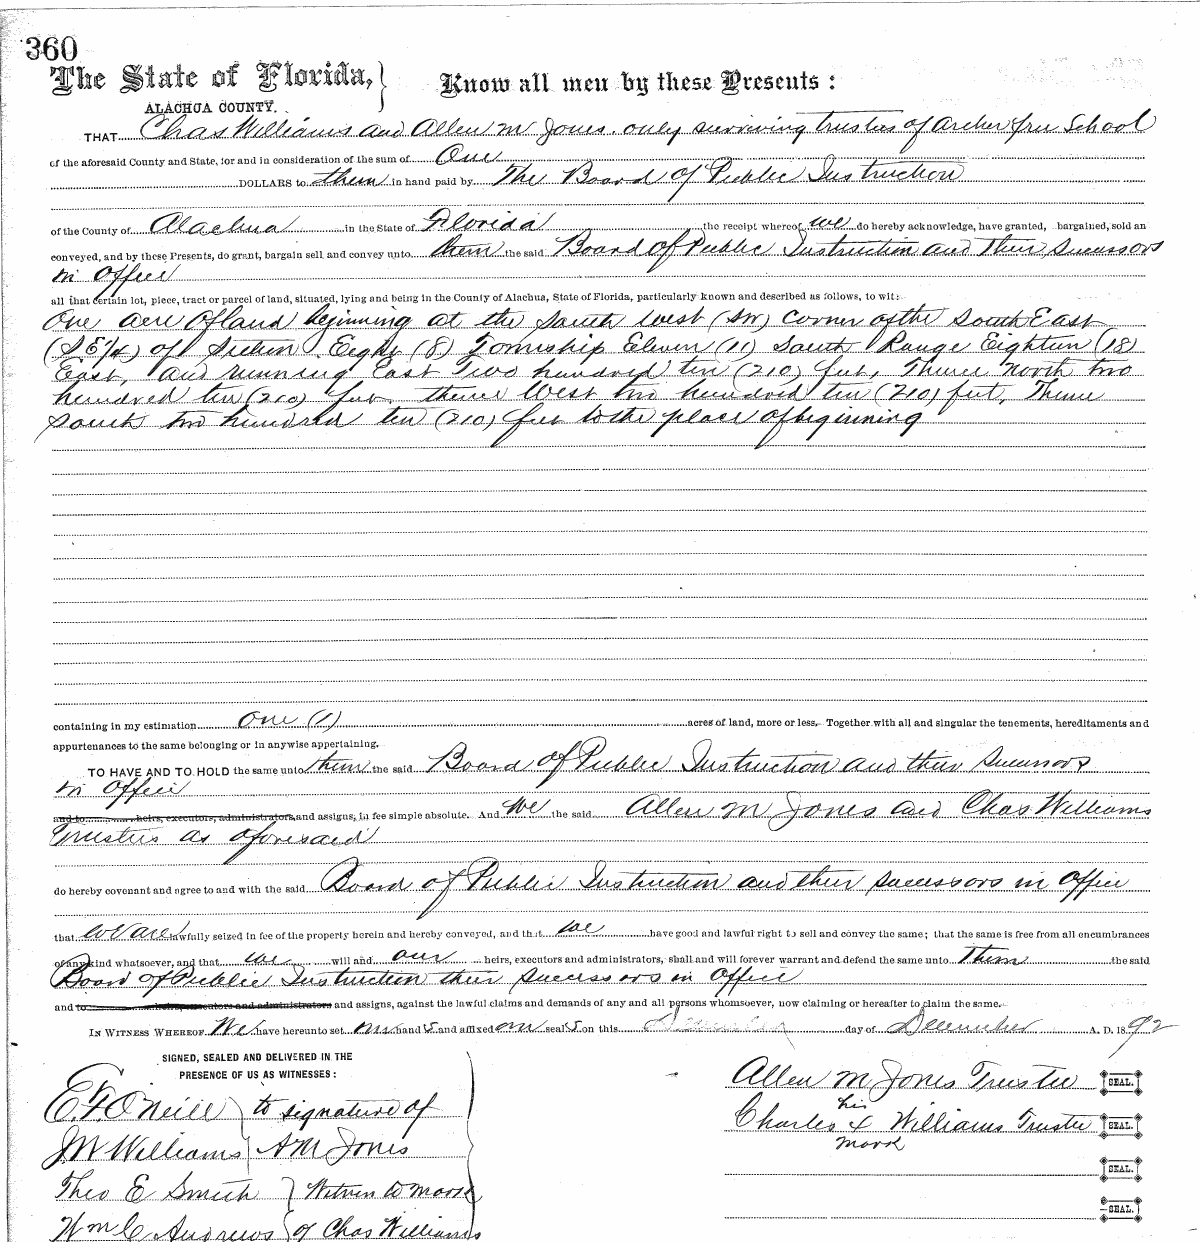 360
The State of Florida, } Know all men by these Presents:
ALACHUA COUNTY.
THAT Chas Williams and Allen M Jones. only surviving trustees of Archer free School
of the aforesaid County and State, for and in consideration of the sum of One
DOLLARS to them in hand paid by The Board of Public Instruction
of the County of Alachua in the State of Florida the receipt whereof we do hereby acknowledge, have granted, bargained, sold an
conveyed, and by these Presents, do grant, bargain sell and convey unto them the said Board of Public Instruction and their Successors
in Office
all that certain lot, piece, tract or parcel of land, situated, lying and being in the County of Alachua, State of Florida, particularly known and described as follows, to wit:
One acre of land beginning at the South West (SW) corner of the South East
(S E 1/4) of Section Eight (8) Township Eleven (11) South Range Eighteen (18)
East, and running East Two hundred ten (210) feet, Thence North two
hundred ten (210) feet thence West two hundred ten (210) feet, Thence
South two hundred ten (210) feet to the place of beginning
containing in my estimation One (1) acres of land, more or less. Together with all and singular the tenements, hereditaments and
appurtenances to the same belonging or in anywise appertaining.
TO HAVE AND TO HOLD the same unto them the said Board of Public Instruction and their Successors
in Office
and to heirs, executors, administrators, and assigns, in fee simple absolute. And we the said Allen M Jones and Chas Williams
Trustees as aforesaid
do hereby covenant and agree to and with the said Board of Public Instruction and their successors in Office
that we are lawfully seized in fee of the property herein and hereby conveyed, and that we have good and lawful right to sell and convey the same; that the same is free from all encumbrances
of any kind whatsoever, and that we will and our heirs, executors and administrators, shall and will forever warrant and defend the same unto Them the said
Board of Public Instruction their successors in Office
and to heirs, executors and administrators and assigns, against the lawful claims and demands of any and all persons whomsoever, now claiming or hereafter to claim the same.
IN WITNESS WHEREOF We have hereunto set our hand s and affixed our seal s on this day of December A. D. 1892
SIGNED, SEALED AND DELIVERED IN THE
PRESENCE OF US AS WITNESSES:
Allen M Jones Trustee SEAL.
E. F. O'Neill } to signature of
his
Charles X Williams Trustee SEAL.
mark
J W Williams } A M Jones
SEAL.
Theo E Smith } Witness to mark
SEAL.
Wm C Andrews } of Chas Williams